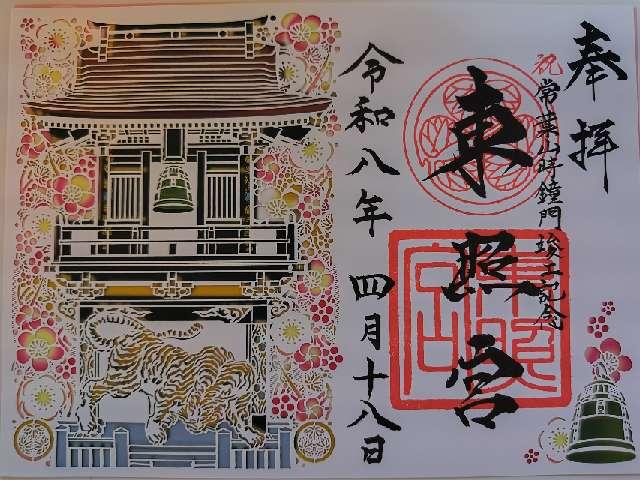 奉拝
祝 常葉山時鐘門竣工記念
東照宮
令和八年 四月十八日